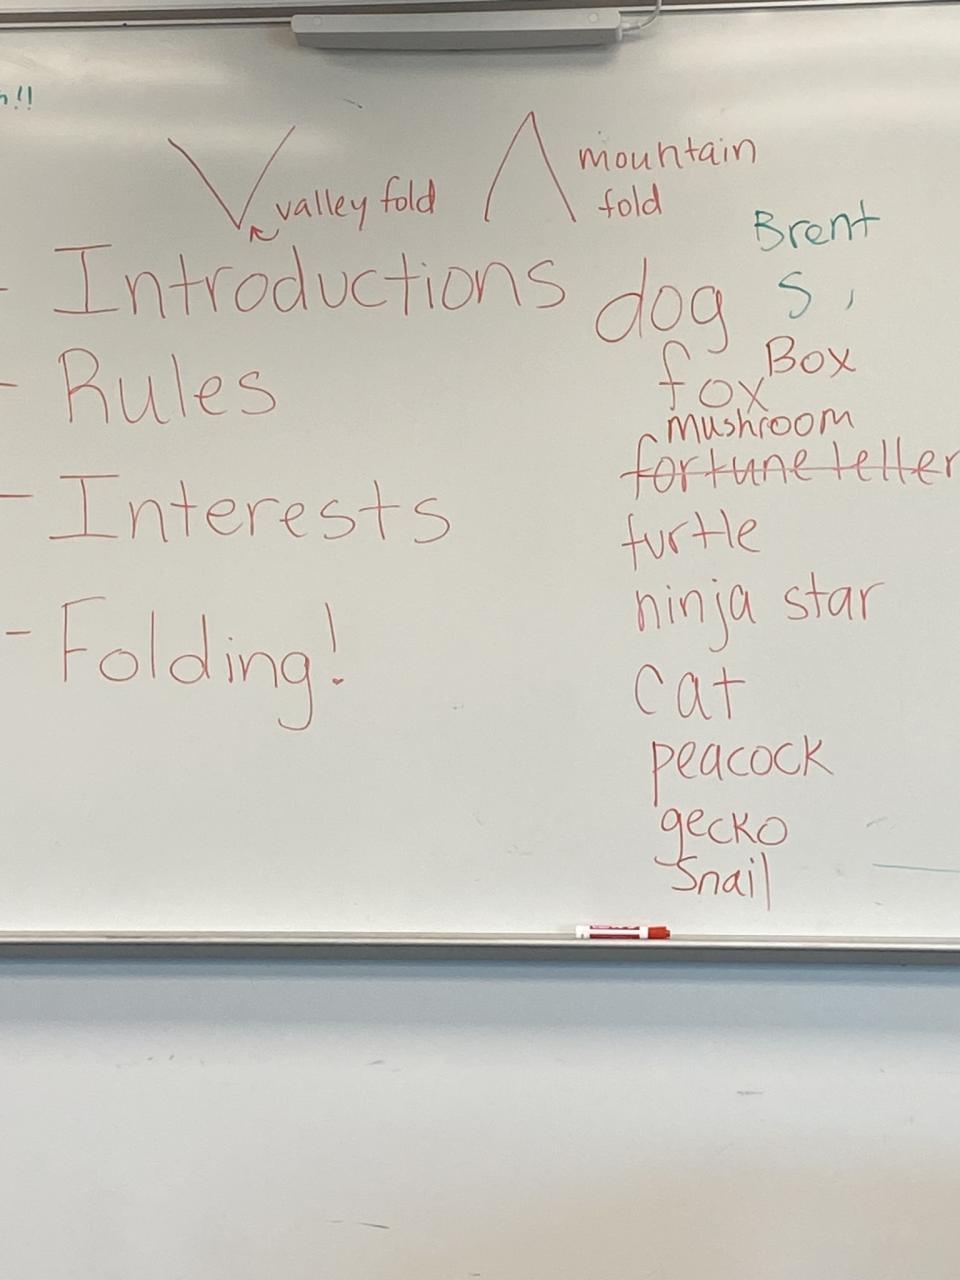 valley fold
mountain
fold
Brent
S,
- Introductions
- Rules
- Interests
- Folding!
dog
Box
fox
mushroom
fortune teller
turtle
ninja star
cat
peacock
gecko
snail